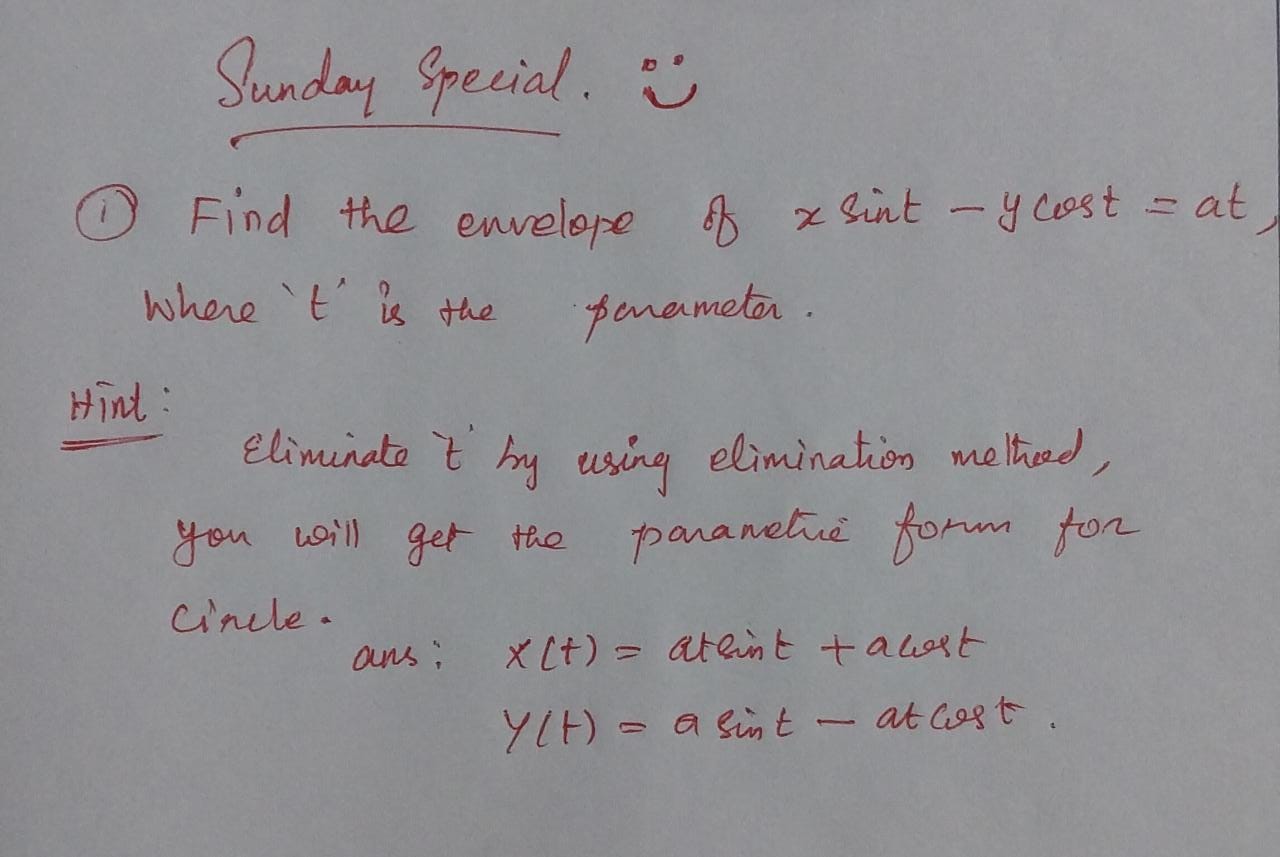 Sunday Special. :)
① Find the envelope of x sint - y cost = at,
Where 't' is the parameter.
Hint:
Eliminate 't' by using elimination method,
you will get the parametric form for
Circle.
ans: X(t) = atsint + acost
Y(t) = a sint - at cost.